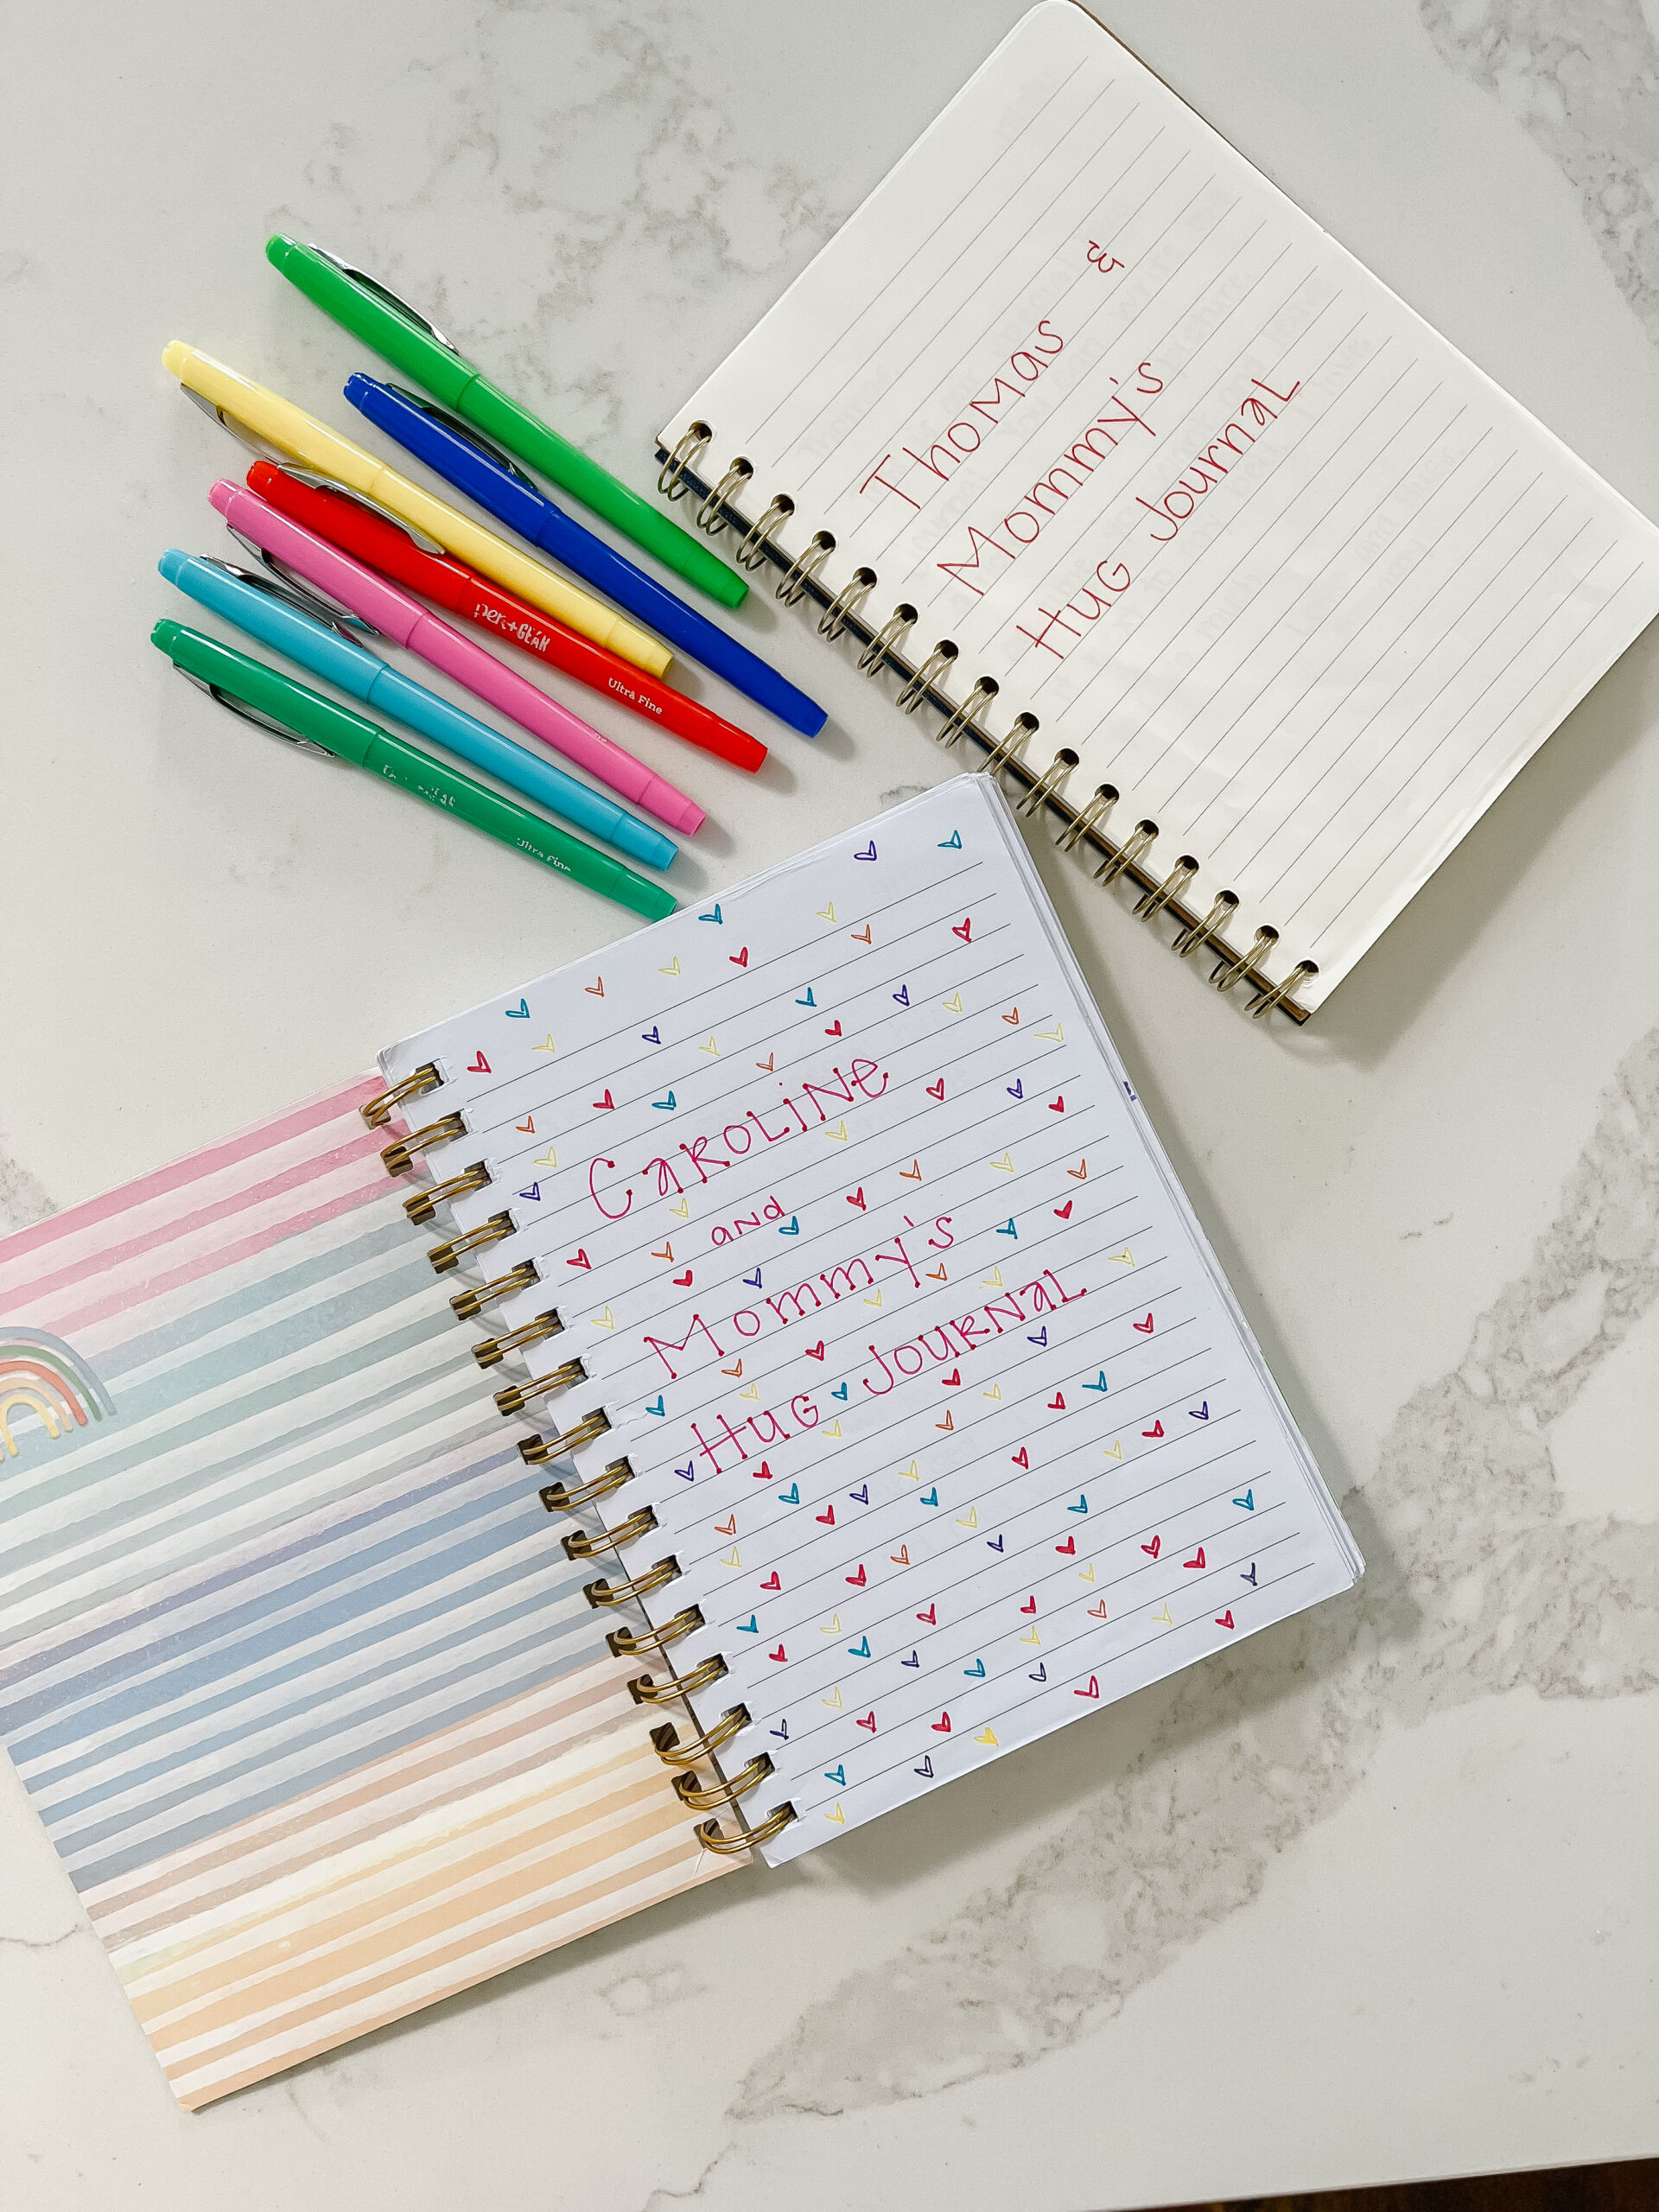 Thomas &
Mommy's
Hug Journal
pen+GEAR
Ultra Fine
Ultra Fine
Caroline
and
Mommy's
Hug Journal